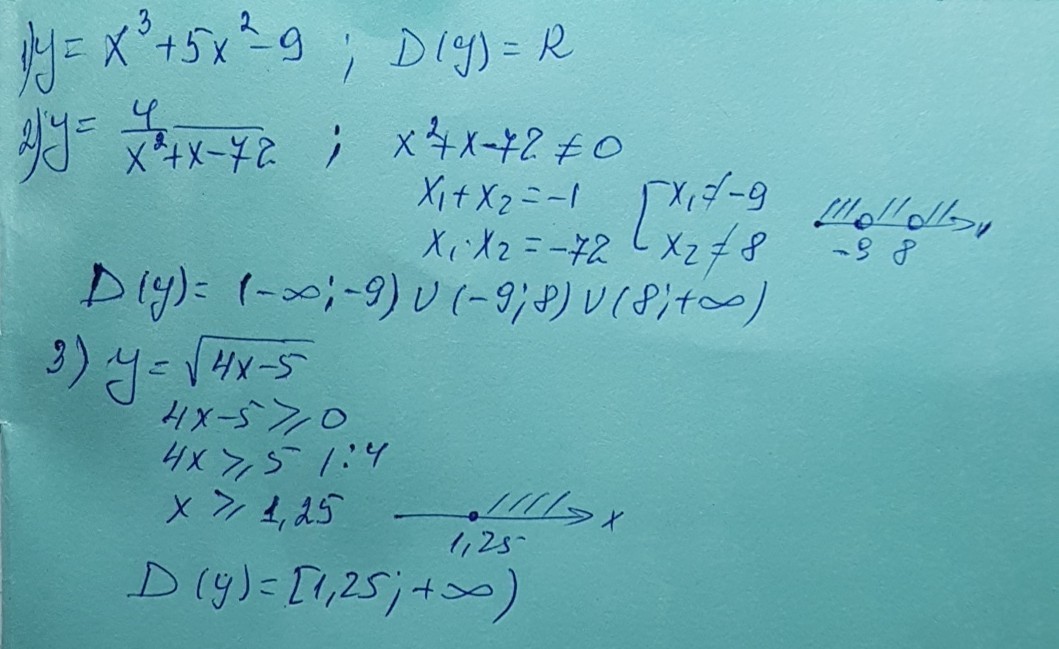 1) y = x³ + 5x² - 9 ; D(y) = R
2) y = 4/(x² + x - 72) ; x² + x - 72 ≠ 0
x₁ + x₂ = -1 [ x₁ ≠ -9
x₁ · x₂ = -72 x₂ ≠ 8 -9 8 x
D(y) = (-∞; -9) ∪ (-9; 8) ∪ (8; +∞)
3) y = √(4x-5)
4x-5 ⩾ 0
4x ⩾ 5 | : 4
x ⩾ 1,25 x
1,25
D(y) = [1,25; +∞)